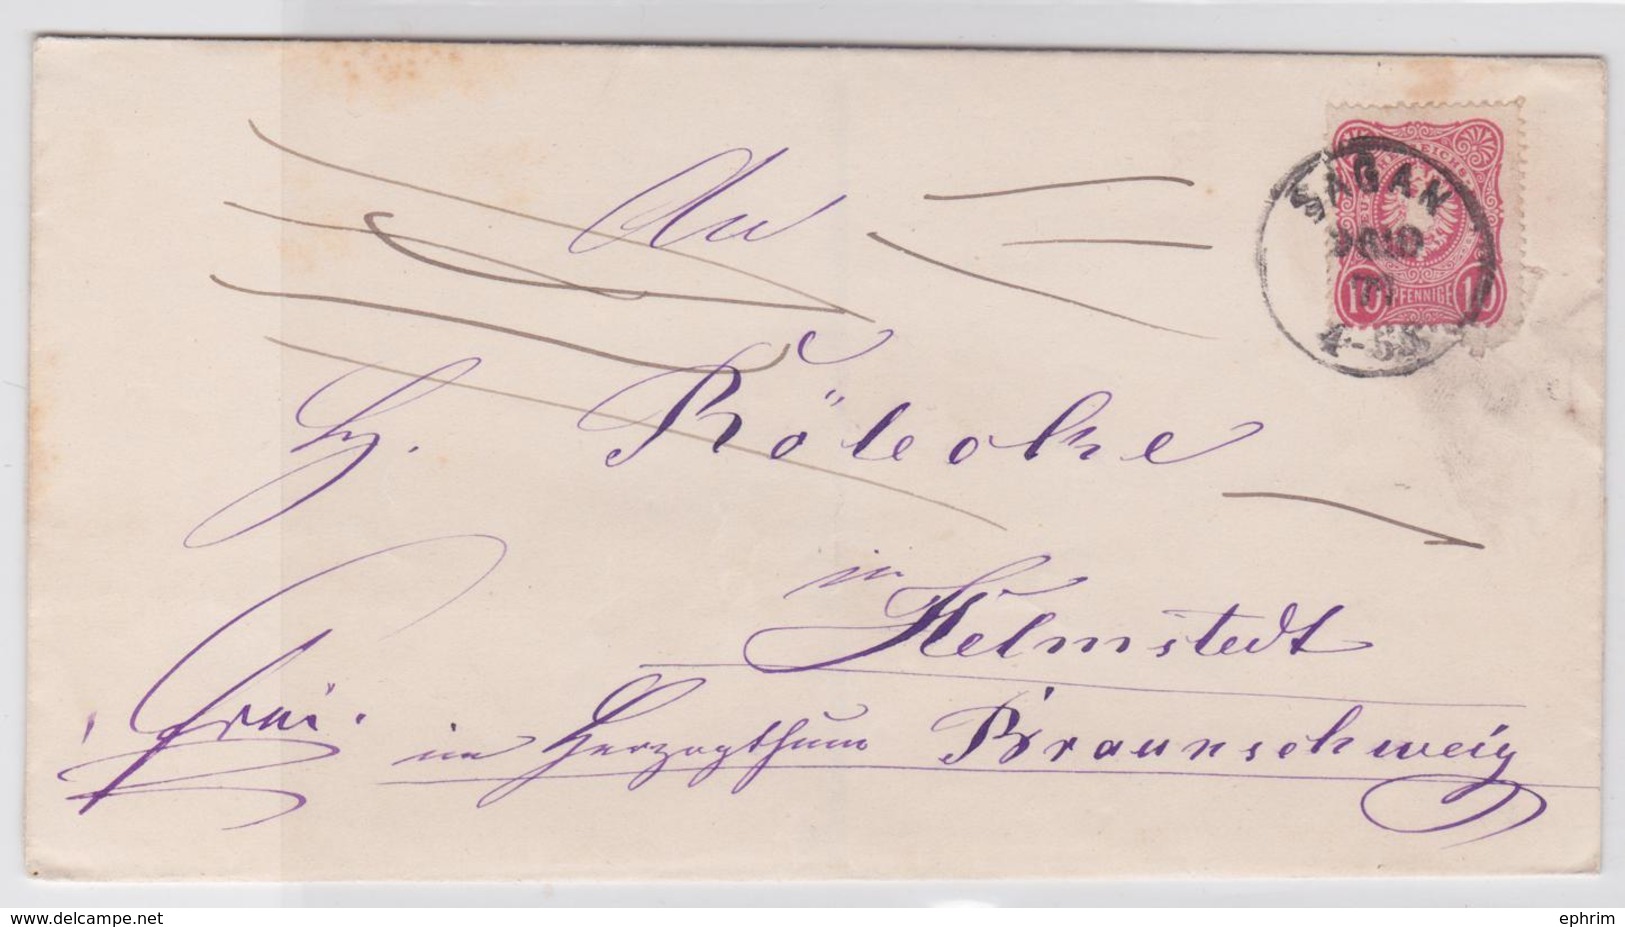 An
H. Röleoke
in
Helmstedt
im Herzogthum Braunschweig
frei.
SAGAN
4-5N
10 PFENNIGE 10
www.delcampe.net
ephrim